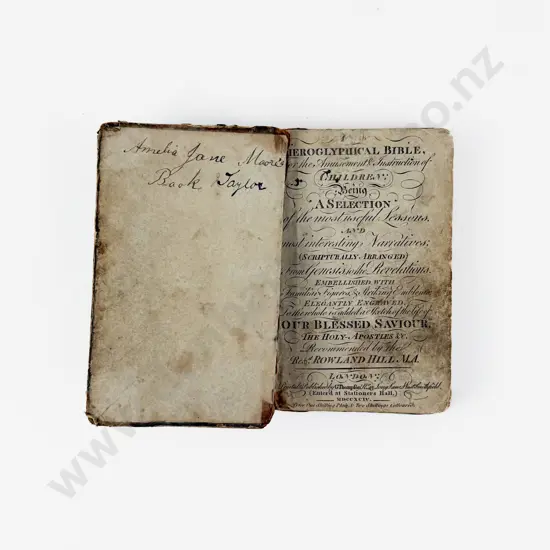 Amelia Jane Moore
Book Taylor
HIEROGLYPHICAL BIBLE,
for the Amusement & Instruction of
CHILDREN;
Being
A SELECTION
of the most useful Lessons,
AND
most interesting Narratives;
(SCRIPTURALLY ARRANGED)
From Genesis to the Revelations.
EMBELLISHED WITH
Familiar Figures & Striking Emblems
ELEGANTLY ENGRAVED
To the whole is added a Sketch of the life of
OUR BLESSED SAVIOUR,
THE HOLY APOSTLES &c.
Recommended by the
Revd. ROWLAND HILL. M.A.
LONDON;
Printed & Published by G. Thompson
(Enter'd at Stationers Hall,)
MDCCXCIV.
Price One Shilling Plain
www.
o.nz